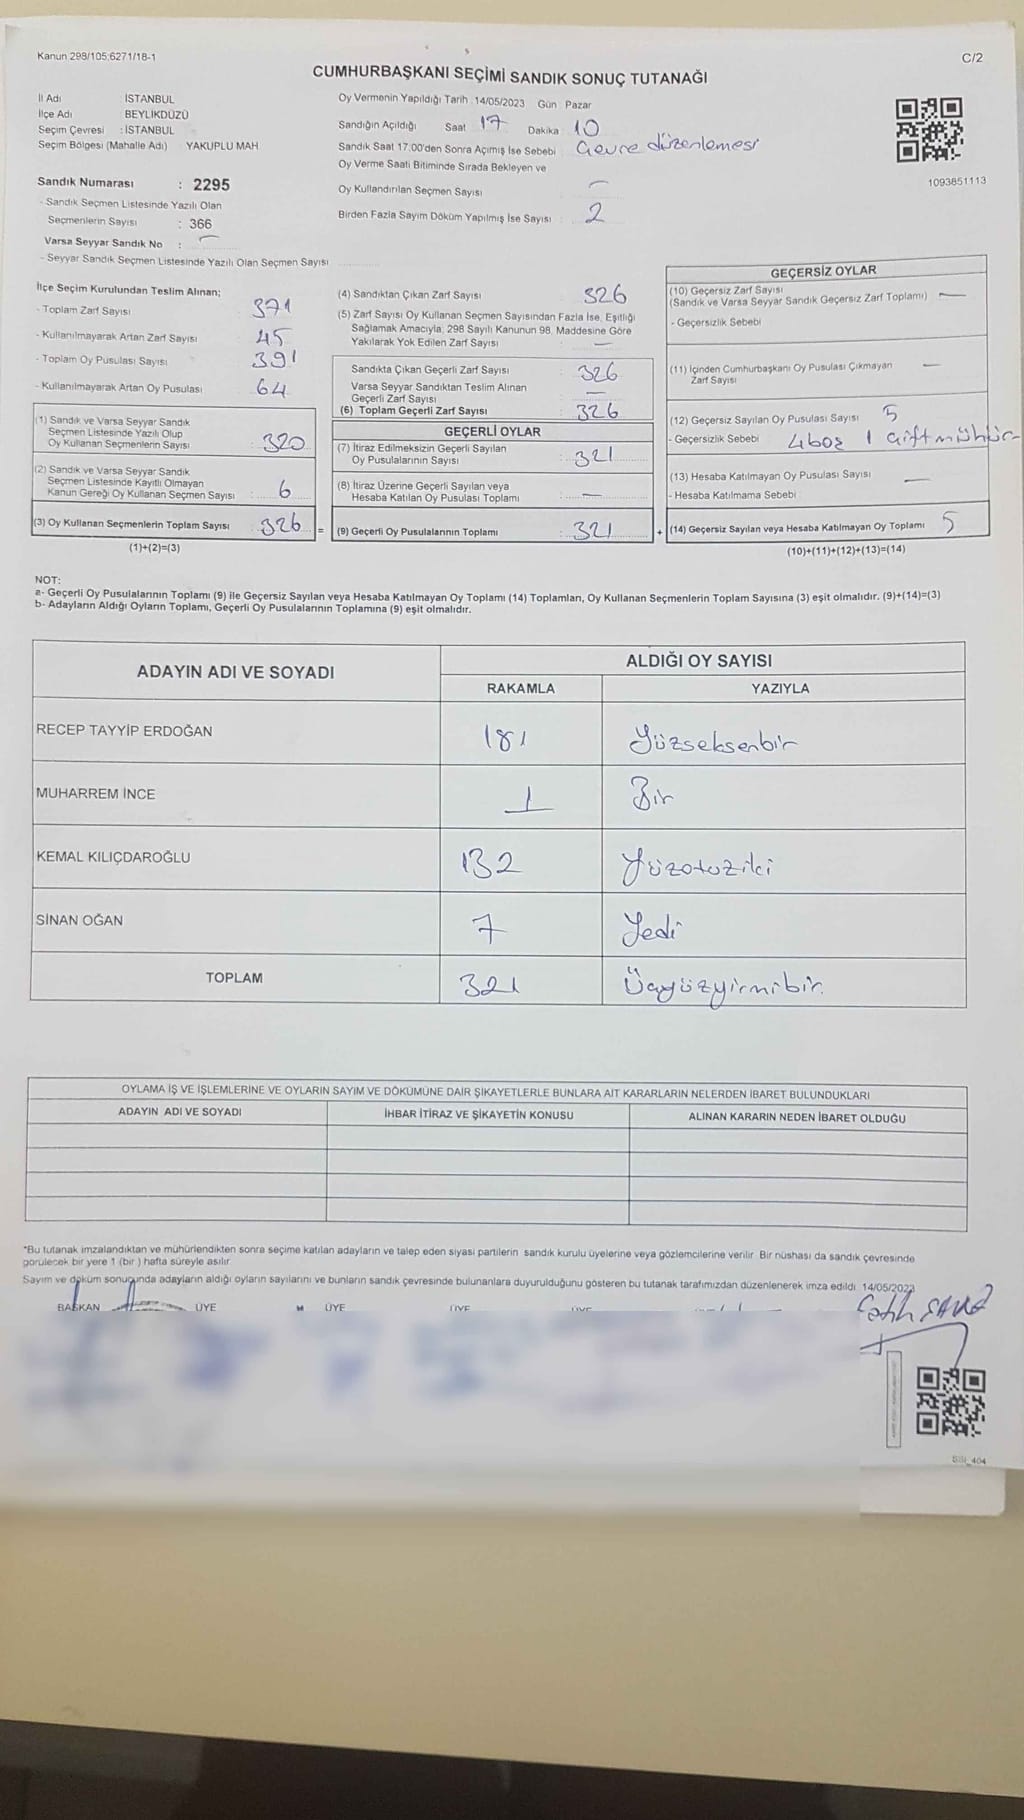 Kanun 298/105;6271/18-1
C/2
CUMHURBAŞKANI SEÇİMİ SANDIK SONUÇ TUTANAĞI
İl Adı : İSTANBUL
İlçe Adı BEYLİKDÜZÜ
Seçim Çevresi : İSTANBUL
Seçim Bölgesi (Mahalle Adı) YAKUPLU MAH
Sandık Numarası : 2295
- Sandık Seçmen Listesinde Yazılı Olan
Seçmenlerin Sayısı : 366
Varsa Seyyar Sandık No : -
- Seyyar Sandık Seçmen Listesinde Yazılı Olan Seçmen Sayısı
Oy Vermenin Yapıldığı Tarih : 14/05/2023 Gün Pazar
Sandığın Açıldığı Saat 17 Dakika 10
Sandık Saat 17.00'den Sonra Açımış İse Sebebi Çevre düzenlemesi
Oy Verme Saati Bitiminde Sırada Bekleyen ve
Oy Kullandırılan Seçmen Sayısı -
Birden Fazla Sayım Döküm Yapılmış İse Sayısı : 2
1093851113
İlçe Seçim Kurulundan Teslim Alınan;
- Toplam Zarf Sayısı 371
- Kullanılmayarak Artan Zarf Sayısı 45
- Toplam Oy Pusulası Sayısı 391
- Kullanılmayarak Artan Oy Pusulası 64
(1) Sandık ve Varsa Seyyar Sandık
Seçmen Listesinde Yazılı Olup
Oy Kullanan Seçmenlerin Sayısı : 320
(2) Sandık ve Varsa Seyyar Sandık
Seçmen Listesinde Kayıtlı Olmayan
Kanun Gereği Oy Kullanan Seçmen Sayısı : 6
(3) Oy Kullanan Seçmenlerin Toplam Sayısı : 326 =
(1)+(2)=(3)
(4) Sandıktan Çıkan Zarf Sayısı : 326
(5) Zarf Sayısı Oy Kullanan Seçmen Sayısından Fazla İse, Eşitliği
Sağlamak Amacıyla; 298 Sayılı Kanunun 98. Maddesine Göre
Yakılarak Yok Edilen Zarf Sayısı : -
Sandıkta Çıkan Geçerli Zarf Sayısı : 326
Varsa Seyyar Sandıktan Teslim Alınan
Geçerli Zarf Sayısı : -
(6) Toplam Geçerli Zarf Sayısı : 326
GEÇERLİ OYLAR
(7) İtiraz Edilmeksizin Geçerli Sayılan
Oy Pusulalarının Sayısı : 321
(8) İtiraz Üzerine Geçerli Sayılan veya
Hesaba Katılan Oy Pusulası Toplamı : -
(9) Geçerli Oy Pusulalarının Toplamı : 321 +
GEÇERSİZ OYLAR
(10) Geçersiz Zarf Sayısı
(Sandık ve Varsa Seyyar Sandık Geçersiz Zarf Toplamı) -
- Geçersizlik Sebebi
(11) İçinden Cumhurbaşkanı Oy Pusulası Çıkmayan
Zarf Sayısı -
(12) Geçersiz Sayılan Oy Pusulası Sayısı 5
- Geçersizlik Sebebi 4 boş 1 çift mühür
(13) Hesaba Katılmayan Oy Pusulası Sayısı -
- Hesaba Katılmama Sebebi
(14) Geçersiz Sayılan veya Hesaba Katılmayan Oy Toplamı 5
(10)+(11)+(12)+(13)=(14)
NOT:
a- Geçerli Oy Pusulalarının Toplamı (9) ile Geçersiz Sayılan veya Hesaba Katılmayan Oy Toplamı (14) Toplamları, Oy Kullanan Seçmenlerin Toplam Sayısına (3) eşit olmalıdır. (9)+(14)=(3)
b- Adayların Aldığı Oyların Toplamı, Geçerli Oy Pusulalarının Toplamına (9) eşit olmalıdır.
ADAYIN ADI VE SOYADI
ALDIĞI OY SAYISI
RAKAMLA YAZIYLA
RECEP TAYYİP ERDOĞAN 181 Yüzseksenbir
MUHARREM İNCE 1 Bir
KEMAL KILIÇDAROĞLU 132 Yüzotuziki
SİNAN OĞAN 7 Yedi
TOPLAM 321 Üçyüzyirmibir.
OYLAMA İŞ VE İŞLEMLERİNE VE OYLARIN SAYIM VE DÖKÜMÜNE DAİR ŞİKAYETLERLE BUNLARA AİT KARARLARIN NELERDEN İBARET BULUNDUKLARI
ADAYIN ADI VE SOYADI İHBAR İTİRAZ VE ŞİKAYETİN KONUSU ALINAN KARARIN NEDEN İBARET OLDUĞU
*Bu tutanak imzalandıktan ve mühürlendikten sonra seçime katılan adayların ve talep eden siyasi partilerin sandık kurulu üyelerine veya gözlemcilerine verilir. Bir nüshası da sandık çevresinde
görülecek bir yere 1 (bir ) hafta süreyle asılır.
Sayım ve döküm sonucunda adayların aldığı oyların sayılarını ve bunların sandık çevresinde bulunanlara duyurulduğunu gösteren bu tutanak tarafımızdan düzenlenerek imza edildi. 14/05/2023
BAŞKAN ÜYE ÜYE ÜYE